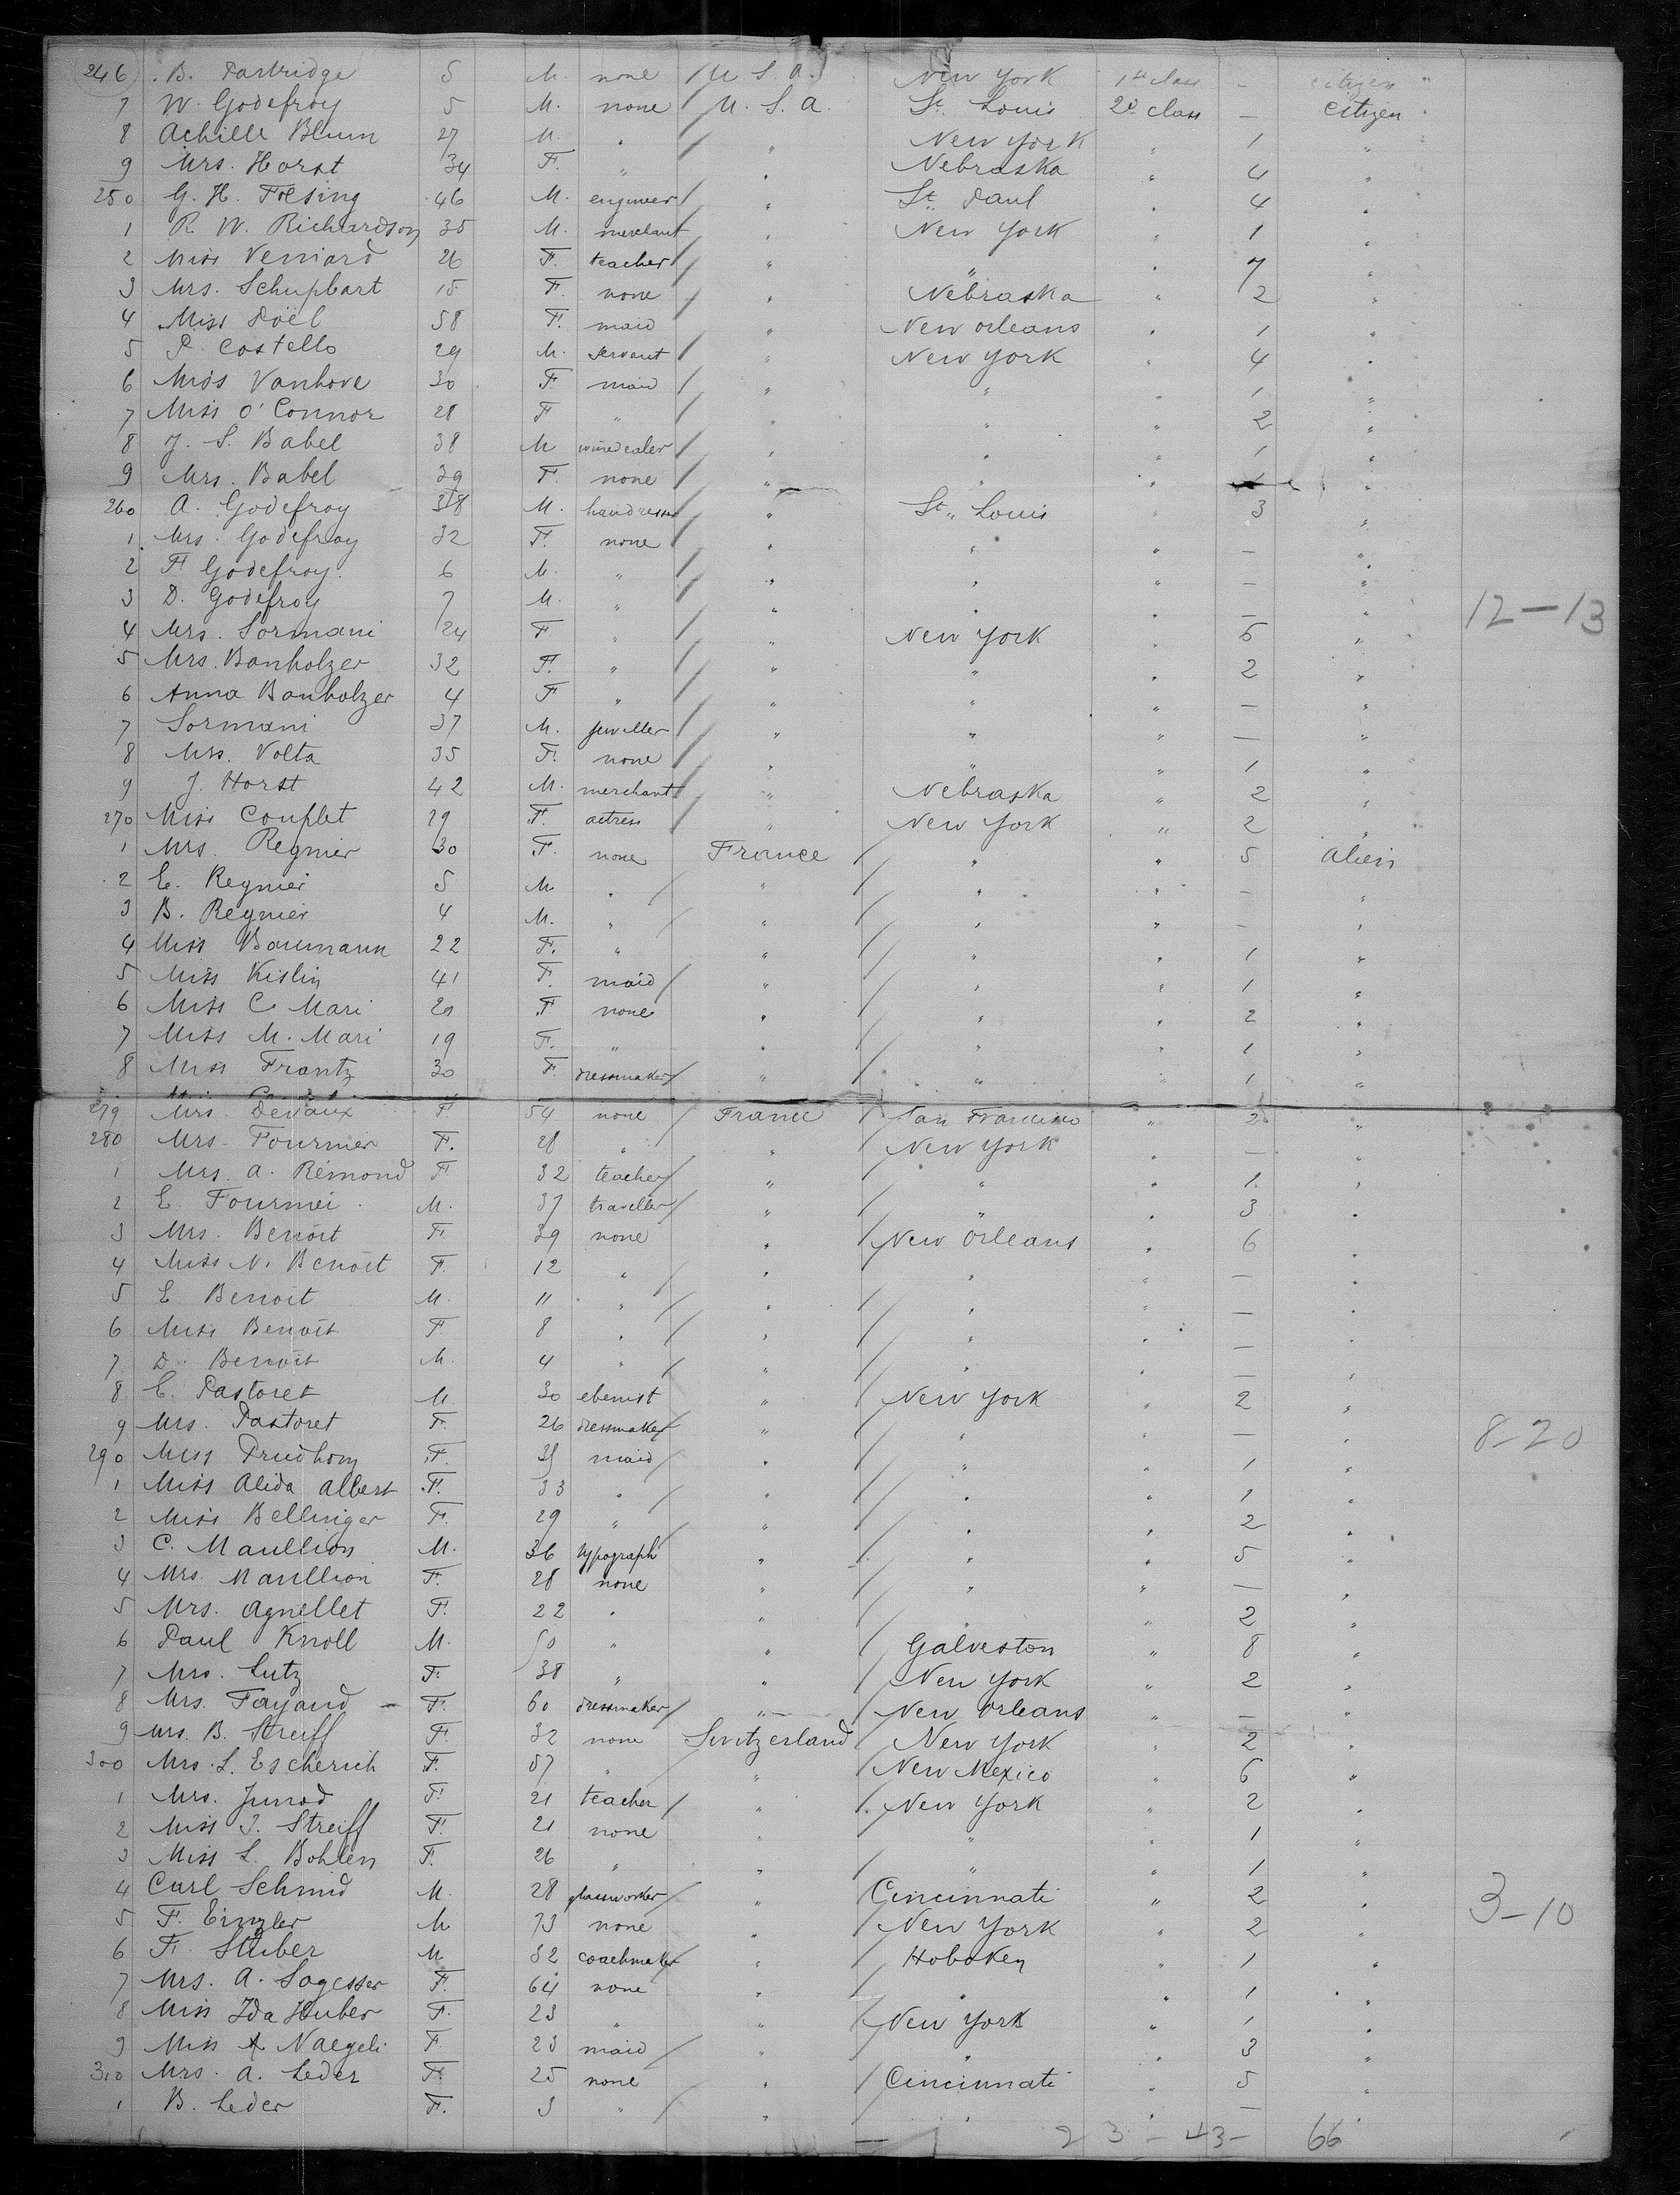 246 B. Partridge 5 M. none U. S. A. New York 1st class - citizen
7 W. Godefroy 5 M. none U. S. A St. Louis 2d class — Citizen
8 Achille Blum 27 M. " " New York " 1 "
9 Mrs. Horst 34 F. " " Nebraska " 4 "
250 G. H. Foesing 46 M. engineer " St. Paul " 4 "
1 R. W. Richardson 35 M. merchant " New York " 1 "
2 Miss Veniard 26 F. teacher " " " 7 "
3 Mrs. Schupbart 15 F. none " Nebraska " 2 "
4 Miss Poël 58 F. maid " New Orleans " 1 "
5 P. Costello 29 M. servant " New York " 4 "
6 Miss Vanhove 30 F maid " " " 1 "
7 Miss O'Connor 28 F " " " " 2 "
8 J. S. Babel 38 M winedealer " " " 1 "
9 Mrs. Babel 39 F. none " " " "
260 A. Godefroy 38 M. hairdresser " St. Louis " 3 "
1 Mrs. Godefroy 32 F. none " " " — "
2 F Godefroy. 6 M. " " " " — "
3 D. Godefroy 7 M. " " " " — " 12—13
4 Mrs. Sormani 24 F " " New York " 6 "
5 Mrs. Banholzer 32 F. " " " " 2 "
6 Anna Banholzer 4 F " " " " — "
7 Sormani 37 M. jeweller " " " — "
8 Mrs. Volta 35 F. none " " " 1 "
9 J. Horst 42 M. merchant " Nebraska " 2 "
270 Miss Couplet 29 F. actress " New York " 2 "
1 Mrs. Regnier 30 F. none France " " 5 alien
2 E. Regnier 5 M. " " " " — "
3 B. Regnier 4 M. " " " " - "
4 Miss Baumann 22 F. " " " " 1 "
5 Miss Kislin 41 F. maid " " " 1 "
6 Miss C Mari 20 F none " " " 2 "
7 Miss M. Mari 19 F. " " " " 1 "
8 Miss Frantz 30 F. dressmaker " " " 1 "
279 Mrs. Devaux F 54 none France San Francisco " 2 "
280 Mrs. Fournier F. 28 " " New York " — "
1 Mrs. A. Rémond F 32 teacher " " " 1 "
2 E Fournier M. 37 traveller " " " 3 "
3 Mrs. Benoit F. 39 none " New Orleans " 6 "
4 Miss N. Benoit F. 12 " " " " — "
5 E Benoit M. 11 " " " " — "
6 Miss Benoit F 8 " " " " — "
7 D. Benoit M. 4 " " " " — "
8 E. Pastoret M 30 ebenist " New York " 2 "
9 Mrs. Pastoret F. 26 dressmaker " " " — " 8-20
290 Miss Prudhom F. maid " " " 1 "
1 Miss Alida Albert F. 33 " " " " 1 "
2 Miss Bellinger F. 29 " " " " 2 "
3 C. Maullion M. 36 typograph " " " 5 "
4 Mrs. Maullion F. 28 none " " " — "
5 Mrs. Agnellet F. 22 " " " " 2 "
6 Paul Knoll M. 50 " " Galveston " 8 "
7 Mrs. Lutz F. 38 " " New York " 2 "
8 Mrs. Fayand F. 60 dressmaker " New Orleans " — "
9 Mrs. B. Streiff F. 32 none Switzerland New York " 2 "
300 Mrs. L. Escherich F. 57 " " New Mexico " 6 "
1 Mrs. Junod F. 21 teacher " New York " 2 "
2 Miss J. Streiff F. 21 none " " " 1 "
3 Miss L. Bohlen F. 26 " " " " 1 "
4 Carl Schmid M. 28 glassworker " Cincinnati " 2 " 3-10
5 F. Einzler M. 73 none " New York " 2 "
6 F. Stuber M 32 coachmaker " Hoboken " 1 "
7 Mrs. A. Sagesser F. 64 none " " " 1 "
8 Miss Ida Huber F. 23 " " New York " 1 "
9 Miss A Naegeli F 23 maid " " " 3 "
310 Mrs. A. Leder F. 25 none " Cincinnati " 5 "
1 B. Leder F. 3 " " " " — "
23 - 43 - 66